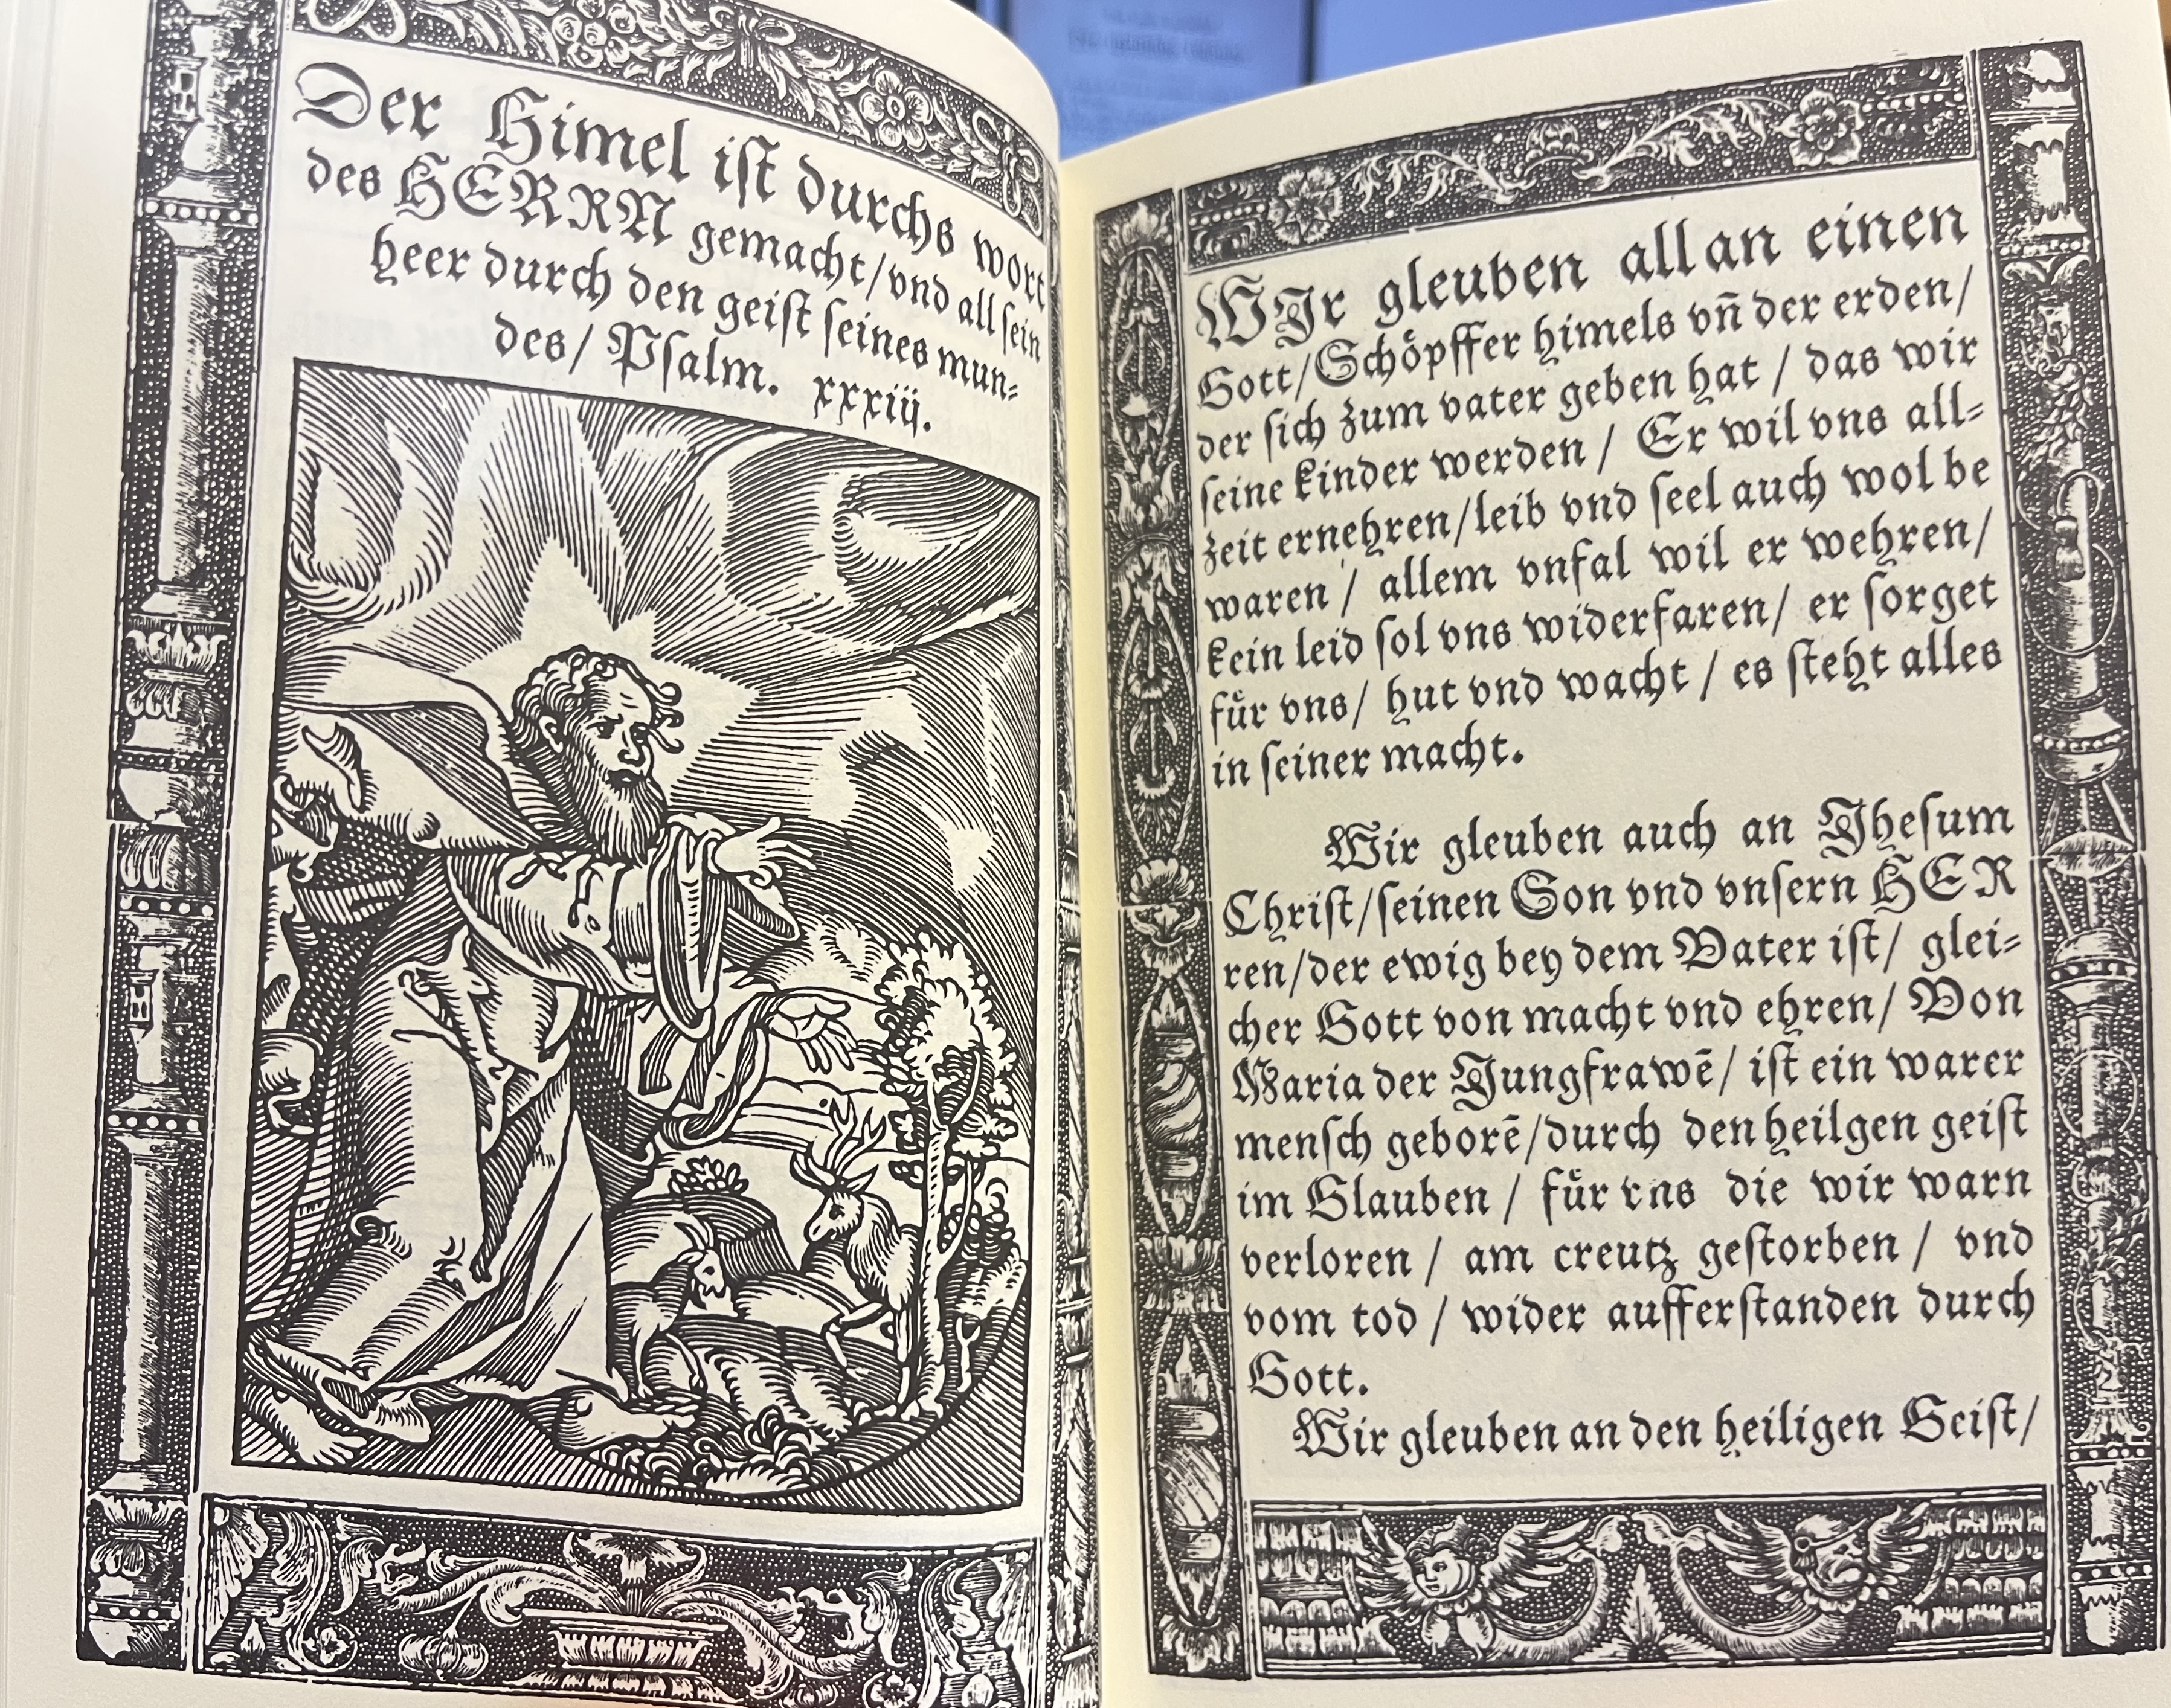 Der Himel iſt durchs wort
des HERRN gemacht/vnd all ſein
heer durch den geiſt ſeines mun⸗
des/ Pſalm. xxxiij.
WJr gleuben all an einen
Gott/Schoͤpffer himels vn̄ der erden/
der ſich zum vater geben hat / das wir
ſeine kinder werden / Er wil vns all⸗
zeit ernehren/leib vnd ſeel auch wol be
waren / allem vnfal wil er wehren/
kein leid ſol vns widerfaren/ er ſorget
fuͤr vns/ hut vnd wacht / es ſteht alles
in ſeiner macht.
Wir gleuben auch an Jheſum
Chriſt/ſeinen Son vnd vnſern HER
ren/der ewig bey dem Vater iſt/ glei⸗
cher Gott von macht vnd ehren/ Von
Maria der Jungfrawē/ iſt ein warer
menſch geborē/durch den heilgen geiſt
im Glauben / fuͤr vns die wir warn
verloren / am creutz geſtorben / vnd
vom tod / wider aufferſtanden durch
Gott.
Wir gleuben an den heiligen Geiſt/